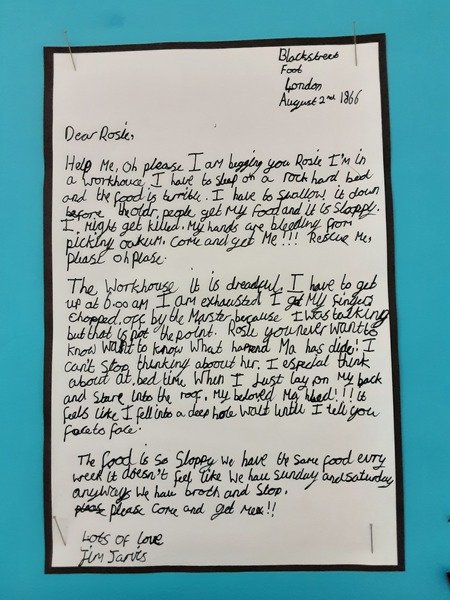 Blackstreet
Foot
London
August 2nd 1866
Dear Rosie,
Help Me, Oh please I am begging you Rosie I'm in
a workhouse. I have to sleep on a rock hard bed
and the food is terrible. I have to swallow it down
before the older people get My food and it is sloppy.
I might get killed. My hands are bleeding from
picking oakum. Come and get Me!!! Rescue Me,
please oh please.
The Workhouse it is dreadful. I have to get
up at 6:00 am I am exhausted I got My fingers
chopped off by the Master because I was talking
but that is not the point. Rosie you never want to
know want to know what happend Ma has dide! I
can't stop thinking about her. I especial think
about at bed time when I Just lay on My back
and stare into the roof. My beloved Ma !!! it
feels like I fell into a deep hole wait until I tell you
face to face.
The food is so sloppy we have the same food evry
week it doesn't feel like We have sunday and saturday
anyways We hav broth and slop.
please Come and get Mee!!
Lots of love
Jim Jarvis